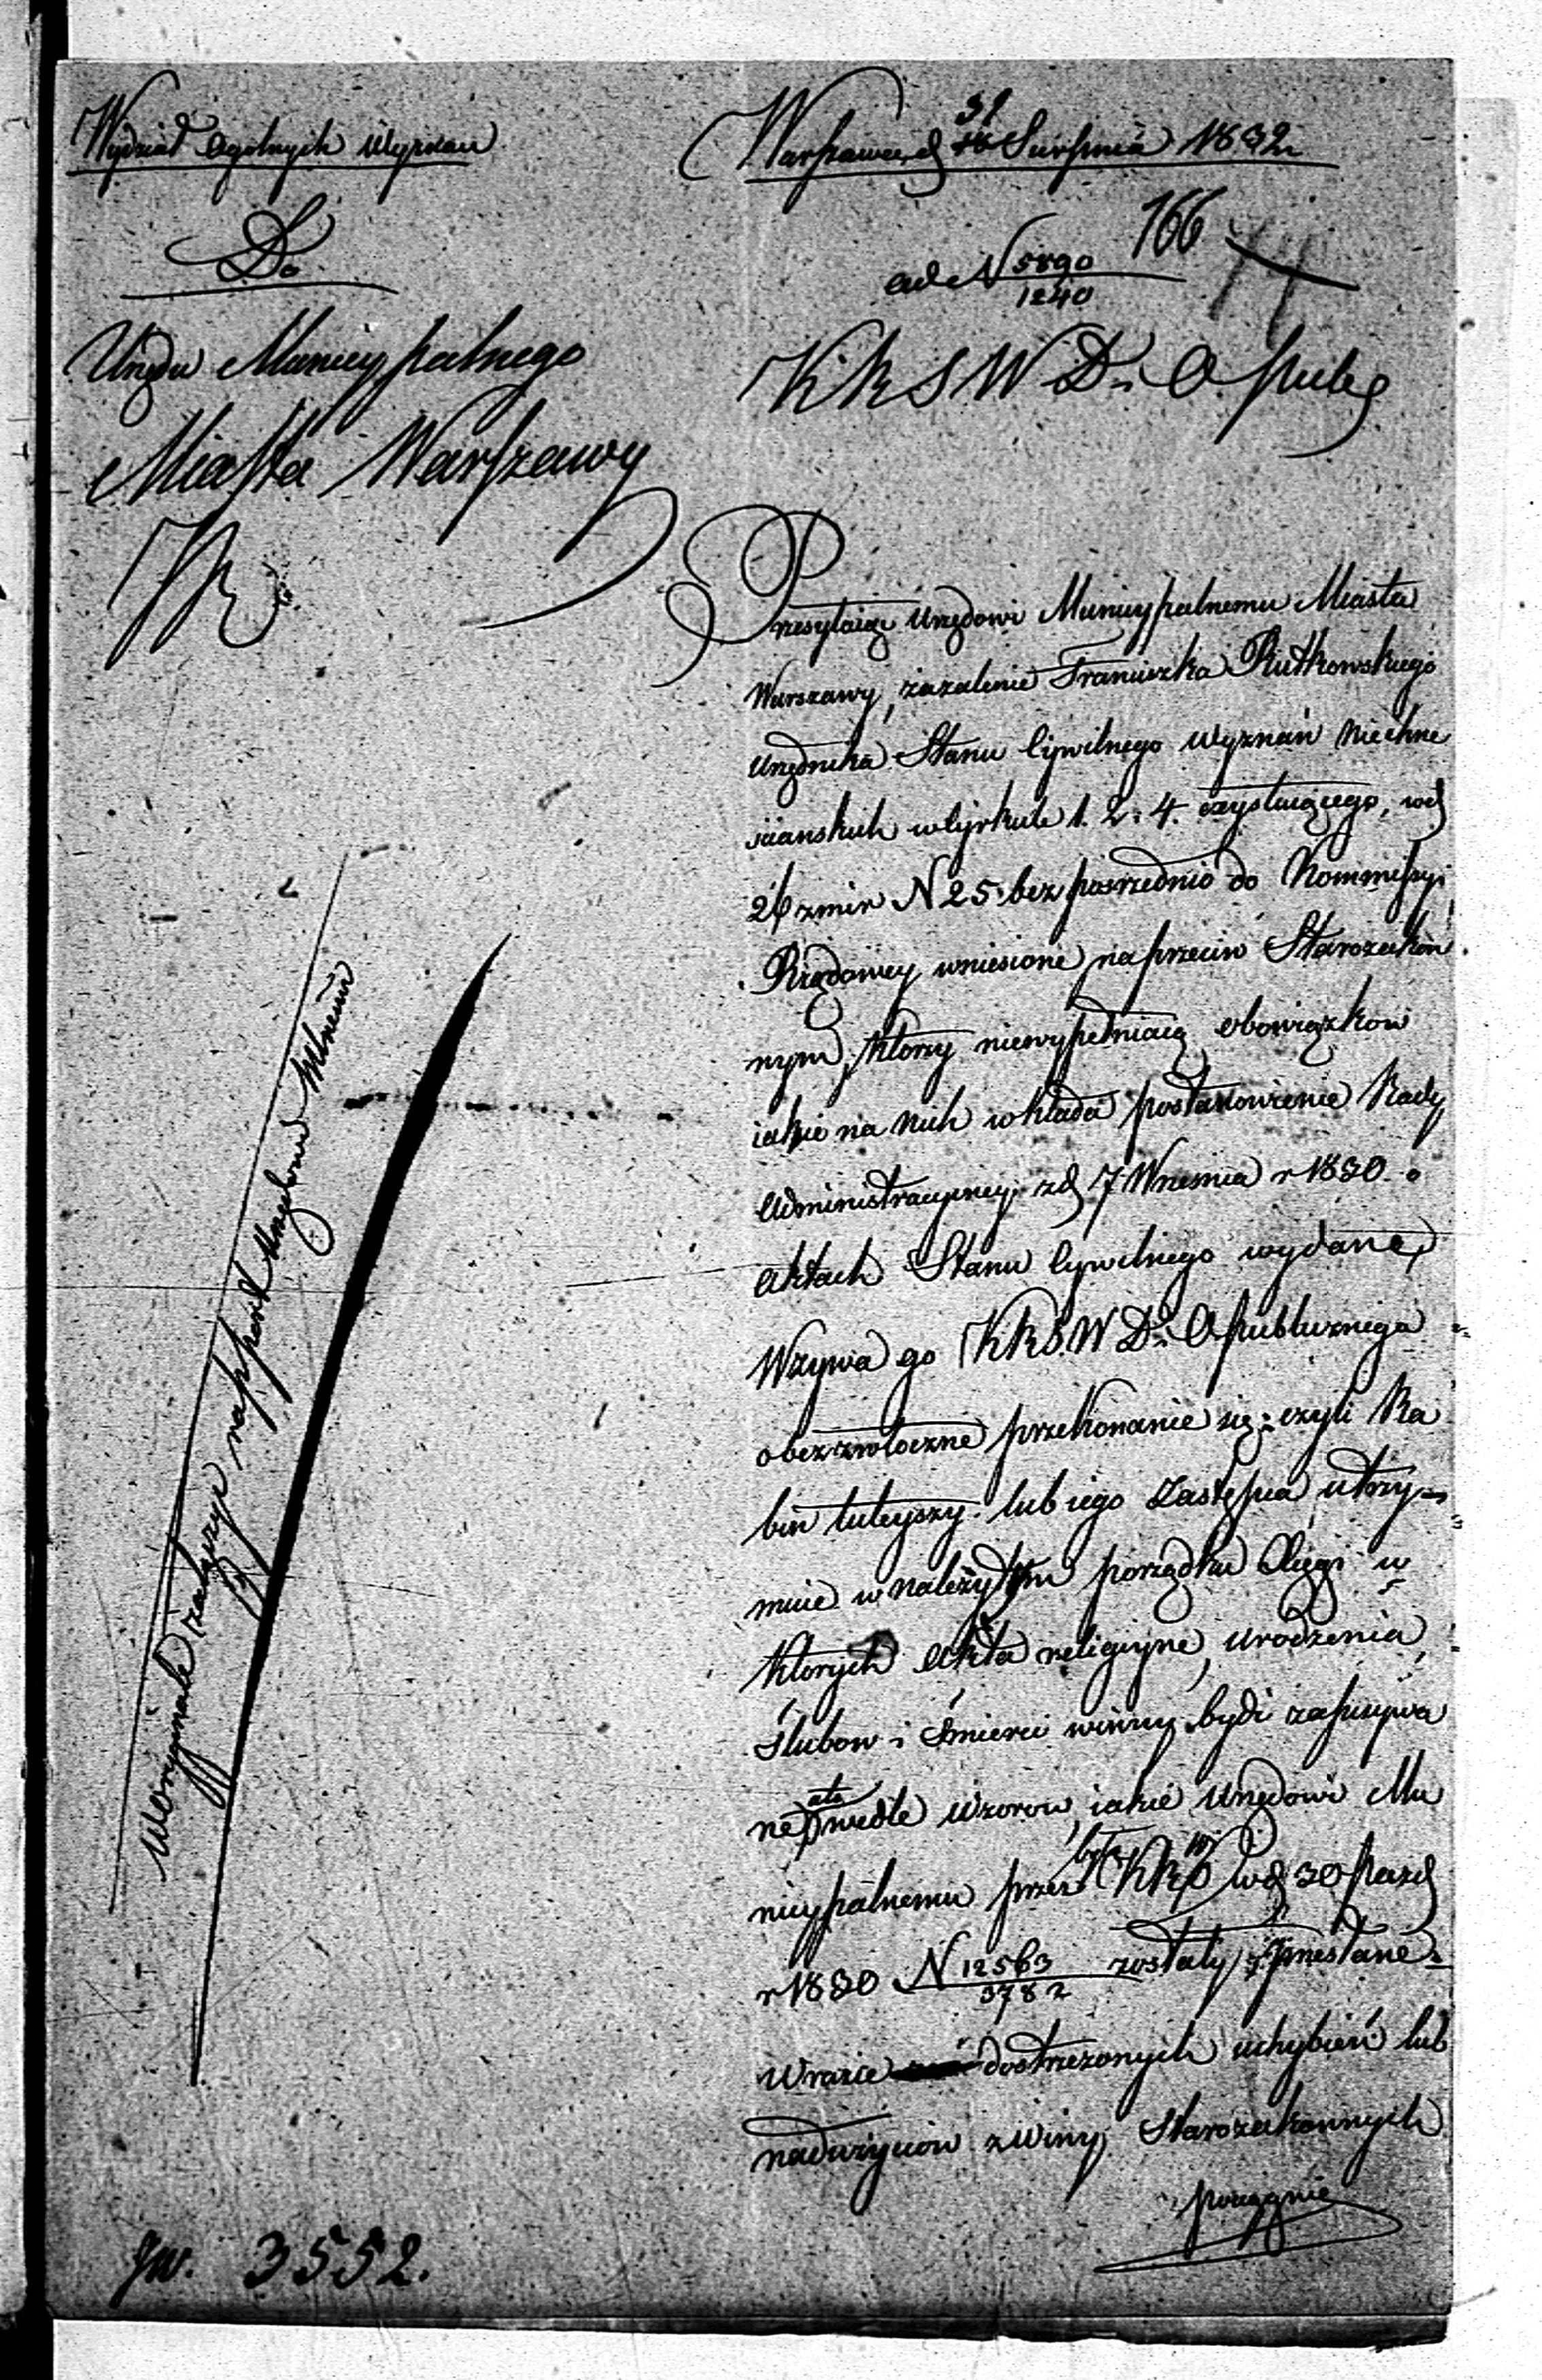 Wydział Ogólnych Wyznań
Warszawa, d 31 Sierpnia 1832
Do
166
ad N 5890/1240
Urzędu Municypalnego
Miasta Warszawy
KRSW D i O. publ
Przesyłaiąc Urzędowi Municypalnemu Miasta
Warszawy, zażalenie Franciszka Rutkowskiego
Urzędnika Stanu Cywilnego Wyznań Niechrze
ściańskich w Cyrkule 1. 2. i 4. exystuiącego, w d
26 z mi r N 25. bezpośrednio do Kommissyi
Rządowey wniesione naprzeciw Starozakon
nym, którzy niewypełniaią obowiązków
iakie na nich wkłada postanowienie Rady
Administracyiney z d 7 Września r 1830. o
Aktach Stanu Cywilnego wydane,
Wzywa go KRSW D i O publicznego
o bezzwłoczne przekonanie się: czyli Ra
bin tuteyszy lub iego Zastępca utrzy=
muie w należytym porządku Xięgi w
których Akta religiyne, urodzenia,
Ślubów i Śmierci winny bydź zapisywa
ne a to wedle wzorów, iakie Urzędowi Mu
nicypalnemu przez byłą KR w d 30 Pazd
r 1830 N 12563/3782 zostały przesłane.
W razie dostrzeżonych uchybień lub
nadużyciów z winy Starozakonnych
pociągnie
w oryginale załączyć rapport Urzędowi
3552.